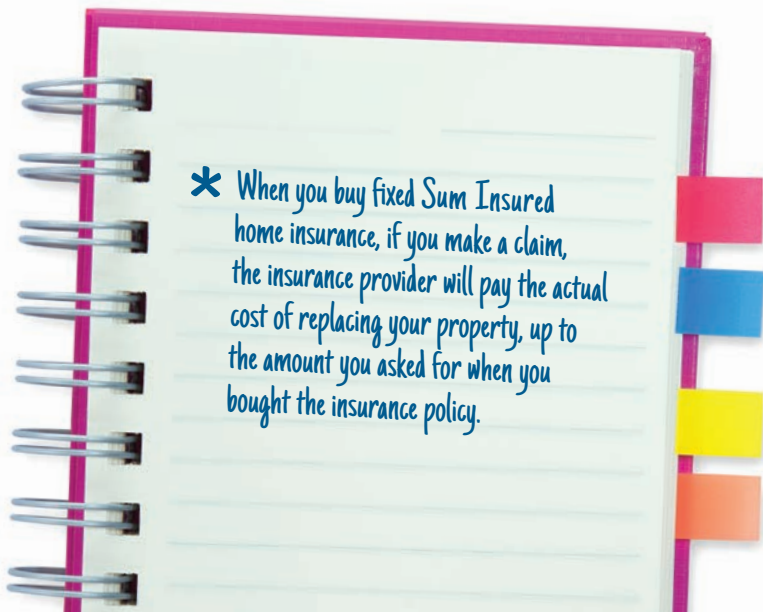 * When you buy fixed Sum Insured
home insurance, if you make a claim,
the insurance provider will pay the actual
cost of replacing your property, up to
the amount you asked for when you
bought the insurance policy.